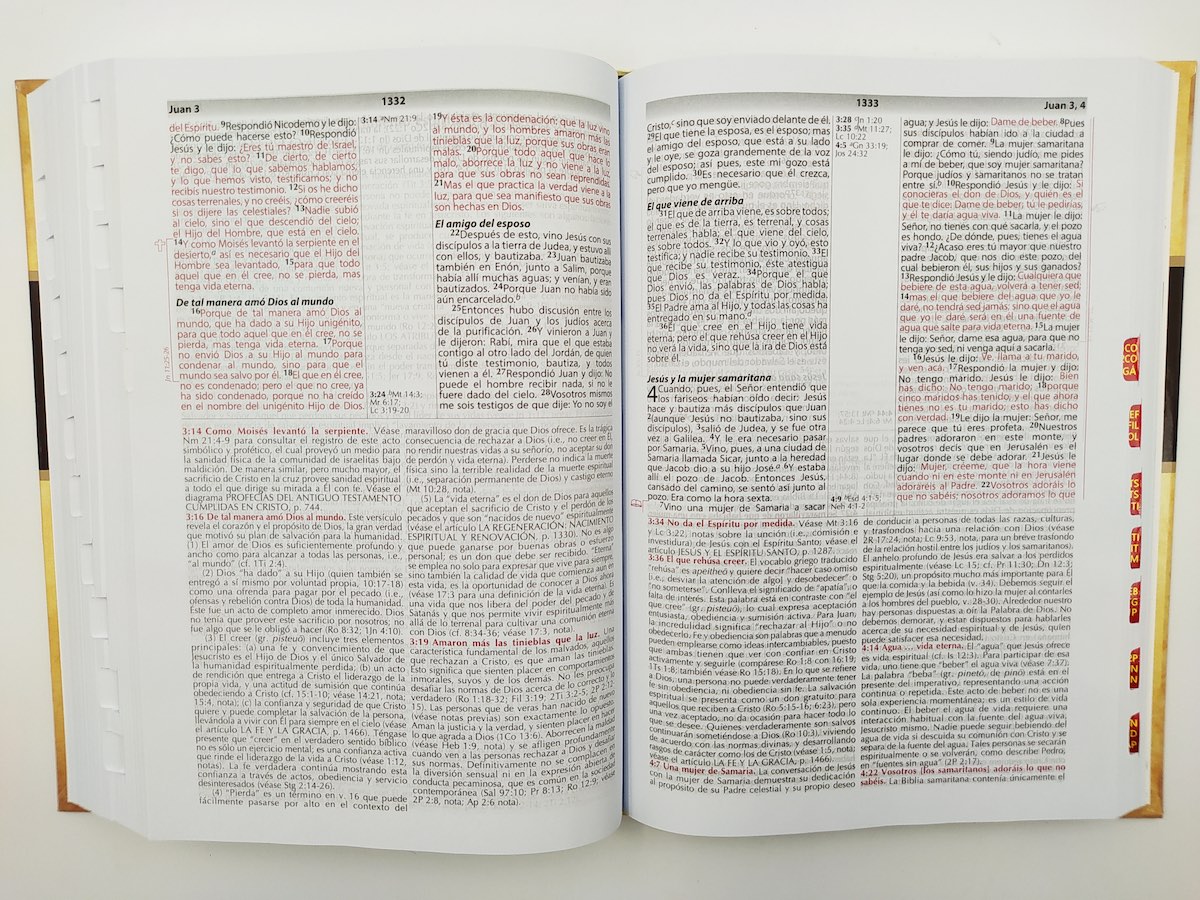 Juan 3
1332
del Espíritu. 9Respondió Nicodemo y le dijo:
¿Cómo puede hacerse esto? 10Respondió
Jesús y le dijo: ¿Eres tú maestro de Israel,
y no sabes esto? 11De cierto, de cierto
te digo, que lo que sabemos hablamos,
y lo que hemos visto, testificamos; y no
recibís nuestro testimonio. 12Si os he dicho
cosas terrenales, y no creéis, ¿cómo creeréis
si os dijere las celestiales? 13Nadie subió
al cielo, sino el que descendió del cielo;
el Hijo del Hombre, que está en el cielo.
14Y como Moisés levantó la serpiente en el
desierto,a así es necesario que el Hijo del
Hombre sea levantado, 15para que todo
aquel que en él cree, no se pierda, mas
tenga vida eterna.
De tal manera amó Dios al mundo
16Porque de tal manera amó Dios al
mundo, que ha dado a su Hijo unigénito,
para que todo aquel que en él cree, no se
pierda, mas tenga vida eterna. 17Porque
no envió Dios a su Hijo al mundo para
condenar al mundo, sino para que el
mundo sea salvo por él. 18El que en él cree,
no es condenado; pero el que no cree, ya
ha sido condenado, porque no ha creído
en el nombre del unigénito Hijo de Dios.
3:14 aNm 21:9
3:24 bMt 14:3;
Mr 6:17;
Lc 3:19-20
19Y ésta es la condenación: que la luz vino
al mundo, y los hombres amaron más las
tinieblas que la luz, porque sus obras eran
malas. 20Porque todo aquel que hace lo
malo, aborrece la luz y no viene a la luz,
para que sus obras no sean reprendidas.
21Mas el que practica la verdad viene a la
luz, para que sea manifiesto que sus obras
son hechas en Dios.
El amigo del esposo
22Después de esto, vino Jesús con sus
discípulos a la tierra de Judea, y estuvo allí
con ellos, y bautizaba. 23Juan bautizaba
también en Enón, junto a Salim, porque
había allí muchas aguas; y venían, y eran
bautizados. 24Porque Juan no había sido
aún encarcelado.b
25Entonces hubo discusión entre los
discípulos de Juan y los judíos acerca
de la purificación. 26Y vinieron a Juan y
le dijeron: Rabí, mira que el que estaba
contigo al otro lado del Jordán, de quien
tú diste testimonio, bautiza, y todos
vienen a él. 27Respondió Juan y dijo: No
puede el hombre recibir nada, si no le
fuere dado del cielo. 28Vosotros mismos
me sois testigos de que dije: Yo no soy el
3:14 Como Moisés levantó la serpiente. Véase
Nm 21:4-9 para consultar el registro de este acto
simbólico y profético, el cual proveyó un medio para
la sanidad física de la comunidad de israelitas bajo
maldición. De manera similar, pero mucho mayor, el
sacrificio de Cristo en la cruz provee sanidad espiritual
a todo el que dirige su mirada a Él con fe. Véase el
diagrama PROFECÍAS DEL ANTIGUO TESTAMENTO
CUMPLIDAS EN CRISTO, p. 744.
3:16 De tal manera amó Dios al mundo. Este versículo
revela el corazón y el propósito de Dios, la gran verdad
que motivó su plan de salvación para la humanidad.
(1) El amor de Dios es suficientemente profundo y
ancho como para alcanzar a todas las personas, i.e.,
“al mundo” (cf. 1Ti 2:4).
(2) Dios “ha dado” a su Hijo (quien también se
entregó a sí mismo por voluntad propia, 10:17-18)
como una ofrenda para pagar por el pecado (i.e.,
ofensas y rebelión contra Dios) de toda la humanidad.
Este fue un acto de completo amor inmerecido. Dios
no tenía que proveer este sacrificio por nosotros; no
fue algo que se le obligó a hacer (Ro 8:32; 1Jn 4:10).
(3) El creer (gr. pisteuō) incluye tres elementos
principales: (a) una fe y convencimiento de que
Jesucristo es el Hijo de Dios y el único Salvador de
la humanidad espiritualmente perdida; (b) un acto
de rendición que entrega a Cristo el liderazgo de la
propia vida, y una actitud de sumisión que continúa
obedeciendo a Cristo (cf. 15:1-10; véase 14:21, nota;
15:4, nota); (c) la confianza y seguridad de que Cristo
quiere y puede completar la salvación de la persona,
llevándola a vivir con Él para siempre en el cielo (véase
el artículo LA FE Y LA GRACIA, p. 1466). Téngase
presente que “creer” en el verdadero sentido bíblico
no es sólo un ejercicio mental; es una confianza activa
que rinde el liderazgo de la vida a Cristo (véase 1:12,
nota). La fe verdadera continúa mostrando esta
confianza a través de actos, obediencia y servicio
desinteresados (véase Stg 2:14-26).
(4) “Pierda” es un término en v. 16 que puede
fácilmente pasarse por alto en el contexto del
maravilloso don de gracia que Dios ofrece. Es la trágica
consecuencia de rechazar a Dios (i.e., no creer en Él,
no rendir nuestras vidas a su señorío, no aceptar su don
de perdón y vida eterna). Perderse no indica la muerte
física sino la terrible realidad de la muerte espiritual
(i.e., separación permanente de Dios) y castigo eterno
(Mt 10:28, nota).
(5) La “vida eterna” es el don de Dios para aquellos
que aceptan el sacrificio de Cristo y el perdón de los
pecados y que son “nacidos de nuevo” espiritualmente
(véase el artículo LA REGENERACIÓN: NACIMIENTO
ESPIRITUAL Y RENOVACIÓN, p. 1330). No es algo
que puede ganarse por buenas obras o esfuerzo
personal; es un don que debe ser recibido. “Eterna”
se emplea no solo para expresar que vive para siempre,
sino también la calidad de vida que comienza aún en
esta vida, es la oportunidad de conocer a Dios ahora
(véase 17:3 para una definición de la vida eterna). Es
una vida que nos libera del poder del pecado y de
Satanás y que nos permite vivir espiritualmente más
allá de lo terrenal para cultivar una comunión eterna
con Dios (cf. 8:34-36; véase 17:3, nota).
3:19 Amaron más las tinieblas que la luz. Una
característica fundamental de los malvados, aquellos
que rechazan a Cristo, es que aman las tinieblas.
Esto significa que sienten placer en comportamientos
inmorales, suyos y de los demás. No les preocupa
desafiar las normas de Dios acerca de lo correcto y lo
verdadero (Ro 1:18-32; Fil 3:19; 2Ti 3:2-5; 2P 2:12-
15). Las personas que de veras han nacido de nuevo
(véase notas previas) son exactamente lo opuesto.
Aman la justicia y la verdad, y sienten placer en hacer
lo que agrada a Dios (1Co 13:6). Aborrecen la maldad
(véase Heb 1:9, nota) y se afligen profundamente
cuando ven a las personas rechazar a Dios y desafiar
sus normas. Definitivamente no se complacen en
la diversión sensual ni en la expresión abierta de
conducta pecaminosa, que es común en la sociedad
contemporánea (Sal 97:10; Pr 8:13; Ro 12:9; véase
2P 2:8, nota; Ap 2:6 nota).
1333
Juan 3, 4
Cristo,c sino que soy enviado delante de él.
29El que tiene la esposa, es el esposo; mas
el amigo del esposo, que está a su lado
y le oye, se goza grandemente de la voz
del esposo; así pues, este mi gozo está
cumplido. 30Es necesario que él crezca,
pero que yo mengüe.
El que viene de arriba
31El que de arriba viene, es sobre todos;
el que es de la tierra, es terrenal, y cosas
terrenales habla; el que viene del cielo,
es sobre todos. 32Y lo que vio y oyó, esto
testifica; y nadie recibe su testimonio. 33El
que recibe su testimonio, éste atestigua
que Dios es veraz. 34Porque el que
Dios envió, las palabras de Dios habla;
pues Dios no da el Espíritu por medida.
35El Padre ama al Hijo, y todas las cosas ha
entregado en su mano.d
36El que cree en el Hijo tiene vida
eterna; pero el que rehúsa creer en el Hijo
no verá la vida, sino que la ira de Dios está
sobre él.
Jesús y la mujer samaritana
4 Cuando, pues, el Señor entendió que
los fariseos habían oído decir: Jesús
hace y bautiza más discípulos que Juan
2(aunque Jesús no bautizaba, sino sus
discípulos), 3salió de Judea, y se fue otra
vez a Galilea. 4Y le era necesario pasar
por Samaria. 5Vino, pues, a una ciudad de
Samaria llamada Sicar, junto a la heredad
que Jacob dio a su hijo José.a 6Y estaba
allí el pozo de Jacob. Entonces Jesús,
cansado del camino, se sentó así junto al
pozo. Era como la hora sexta.
7Vino una mujer de Samaria a sacar
3:28 cJn 1:20
3:35 dMt 11:27;
Lc 10:22
4:5 aGn 33:19;
Jos 24:32
4:9 bEsd 4:1-5;
Neh 4:1-2
agua; y Jesús le dijo: Dame de beber. 8Pues
sus discípulos habían ido a la ciudad a
comprar de comer. 9La mujer samaritana
le dijo: ¿Cómo tú, siendo judío, me pides
a mí de beber, que soy mujer samaritana?
Porque judíos y samaritanos no se tratan
entre sí.b 10Respondió Jesús y le dijo: Si
conocieras el don de Dios, y quién es el
que te dice: Dame de beber; tú le pedirías,
y él te daría agua viva. 11La mujer le dijo:
Señor, no tienes con qué sacarla, y el pozo
es hondo. ¿De dónde, pues, tienes el agua
viva? 12¿Acaso eres tú mayor que nuestro
padre Jacob, que nos dio este pozo, del
cual bebieron él, sus hijos y sus ganados?
13Respondió Jesús y le dijo: Cualquiera que
bebiere de esta agua, volverá a tener sed;
14mas el que bebiere del agua que yo le
daré, no tendrá sed jamás; sino que el agua
que yo le daré será en él una fuente de
agua que salte para vida eterna. 15La mujer
le dijo: Señor, dame esa agua, para que no
tenga yo sed, ni venga aquí a sacarla.
16Jesús le dijo: Ve, llama a tu marido,
y ven acá. 17Respondió la mujer y dijo:
No tengo marido. Jesús le dijo: Bien
has dicho: No tengo marido; 18porque
cinco maridos has tenido, y el que ahora
tienes no es tu marido; esto has dicho
con verdad. 19Le dijo la mujer: Señor, me
parece que tú eres profeta. 20Nuestros
padres adoraron en este monte, y
vosotros decís que en Jerusalén es el
lugar donde se debe adorar. 21Jesús le
dijo: Mujer, créeme, que la hora viene
cuando ni en este monte ni en Jerusalén
adoraréis al Padre. 22Vosotros adoráis lo
que no sabéis; nosotros adoramos lo que
3:34 No da el Espíritu por medida. Véase Mt 3:16
y Lc 3:22; notas sobre la unción (i.e., comisión e
investidura) de Jesús con el Espíritu Santo; véase el
artículo JESÚS Y EL ESPÍRITU SANTO, p. 1287.
3:36 El que rehúsa creer. El vocablo griego traducido
“rehúsa” es apeitheō y quiere decir “hacer caso omiso
(i.e., desviar la atención de algo) y desobedecer” o
“no someterse”. Conlleva el significado de “apatía”, o
falta de interés. Esta palabra está en contraste con “el
que cree” (gr. pisteuō), lo cual expresa aceptación
entusiasta, obediencia y sumisión activa. Para Juan,
la incredulidad significa “rechazar al Hijo” o no
obedecerlo. Fe y obediencia son palabras que a menudo
pueden emplearse como ideas intercambiables, puesto
que ambas tienen que ver con confiar en Cristo
activamente y seguirle (compárese Ro 1:8 con 16:19;
1Ts 1:8; también véase Ro 15:18). En lo que se refiere
a Dios, una persona no puede verdaderamente tener
fe sin obediencia, ni obediencia sin fe. La salvación
espiritual se presenta como un don gratuito para
aquellos que reciben a Cristo (Ro 5:15-16; 6:23), pero
una vez aceptado, no da ocasión para hacer todo lo
que se desee. Quienes verdaderamente son salvos
continuarán sometiéndose a Dios (Ro 10:3), viviendo
de acuerdo con las normas divinas, y desarrollando
rasgos de carácter como los de Cristo (véase 1:5, nota;
véase el artículo LA FE Y LA GRACIA, p. 1466).
4:7 Una mujer de Samaria. La conversación de Jesús
con la mujer de Samaria demuestra su dedicación
al propósito de su Padre celestial y su propio deseo
de conducir a personas de todas las razas, culturas,
y trasfondos hacia una relación con Dios (véase
2R 17:24, nota; Lc 9:53, nota, para un breve trasfondo
de la relación hostil entre los judíos y los samaritanos).
El anhelo profundo de Jesús era salvar a los perdidos
espiritualmente (véase Lc 15; cf. Pr 11:30; Dn 12:3;
Stg 5:20), un propósito mucho más importante para Él
que la comida y la bebida (v. 34). Debemos seguir el
ejemplo de Jesús (así como lo hizo la mujer al contarles
a los hombres del pueblo, v. 28-30). Alrededor nuestro
hay personas dispuestas a oír la Palabra de Dios. No
debemos demorar, y estar dispuestos para hablarles
acerca de su necesidad espiritual y de Jesús, quien
puede satisfacer esa necesidad.
4:14 Agua … vida eterna. El “agua” que Jesús ofrece
es vida espiritual (cf. Is 12:3). Para participar de esa
vida, uno tiene que “beber” el agua viva (véase 7:37).
La palabra “beba” (gr. pineto, de pinō) está en el
presente del imperativo, representando una acción
continua o repetida. Este acto de beber no es una
sola experiencia momentánea; es un estilo de vida
continuo. El beber el agua de vida requiere una
interacción habitual con la fuente del agua viva,
Jesucristo mismo. Nadie puede seguir bebiendo del
agua de vida si descuida su comunión con Cristo y se
separa de la fuente del agua. Tales personas se secarán
espiritualmente o se volverán, como describe Pedro,
en “fuentes sin agua” (2P 2:17).
4:22 Vosotros [los samaritanos] adoráis lo que no
sabéis. La Biblia samaritana contenía únicamente el